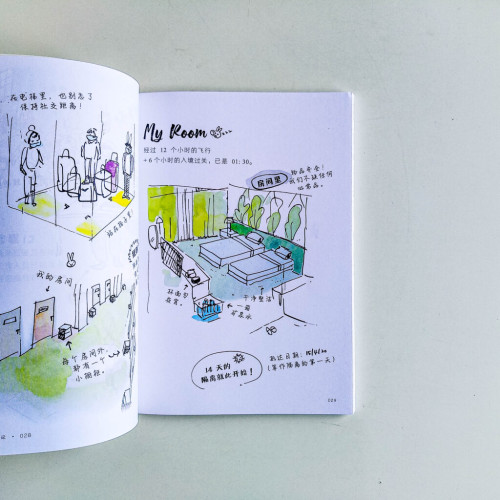 在电梯里，也别忘了
保持社交距离！
站在指示里！
我的房间
每个房间外
都有一个
小拥挤。
028
My Room
经过 12 个小时的飞行
+6 个小时的入境过关，已是 01:30。
房间里
物品齐全！
我们不缺任何
必需品。
环西节
干净整洁
一箱
矿泉水
14 天的
隔离就此开始！
抵达日期：15/4/20
（算作隔离的第一天）
029